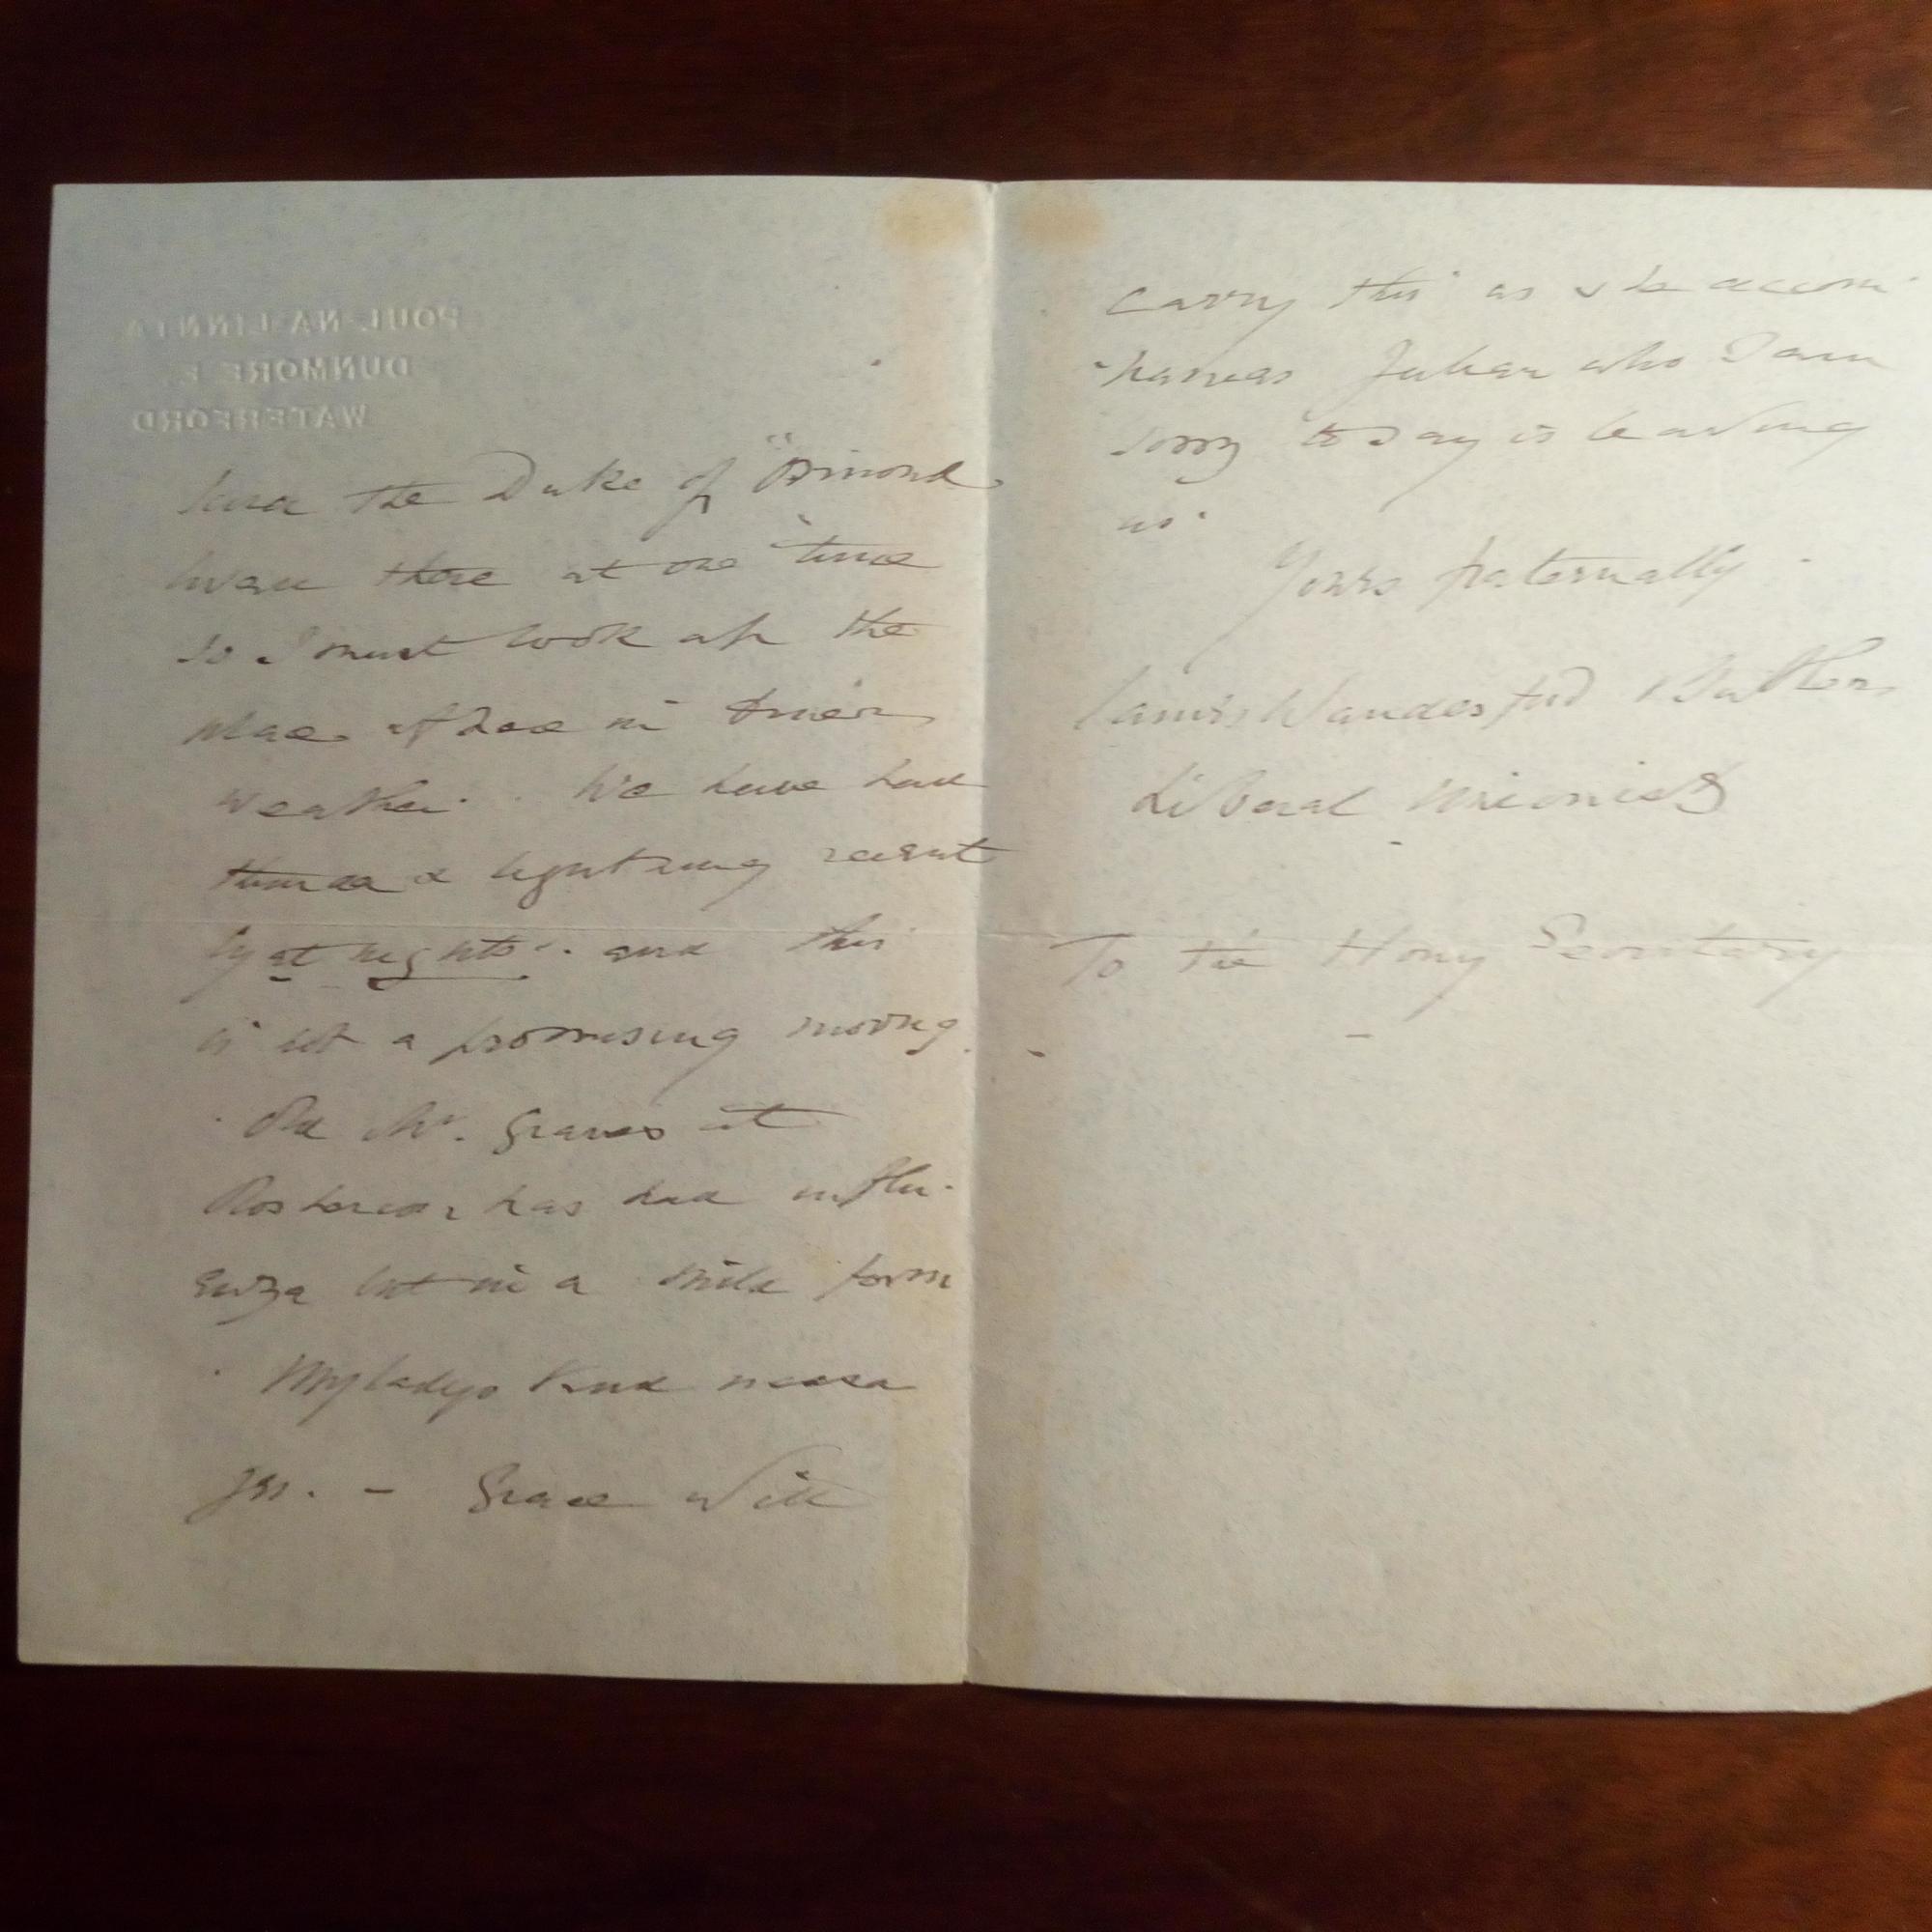 POUL-NA-LINNTA
DUNMORE E.
WATERFORD
the Duke of "Ormond
there at one time
so I must look up the
place in finer
weather. We have had
thunder & lightning recent
ly at nights. and this
is not a promising morng.
Old Mr. Graves at
Rosbercon has had influ-
enza but in a mild form
My ladys kind
Grace will
carry this as she accom
panies Julian who I am
sorry to say is leaving
us.
Yours fraternally
James Wandesford Butler
Liberal Unionist
To the Hony Secretary